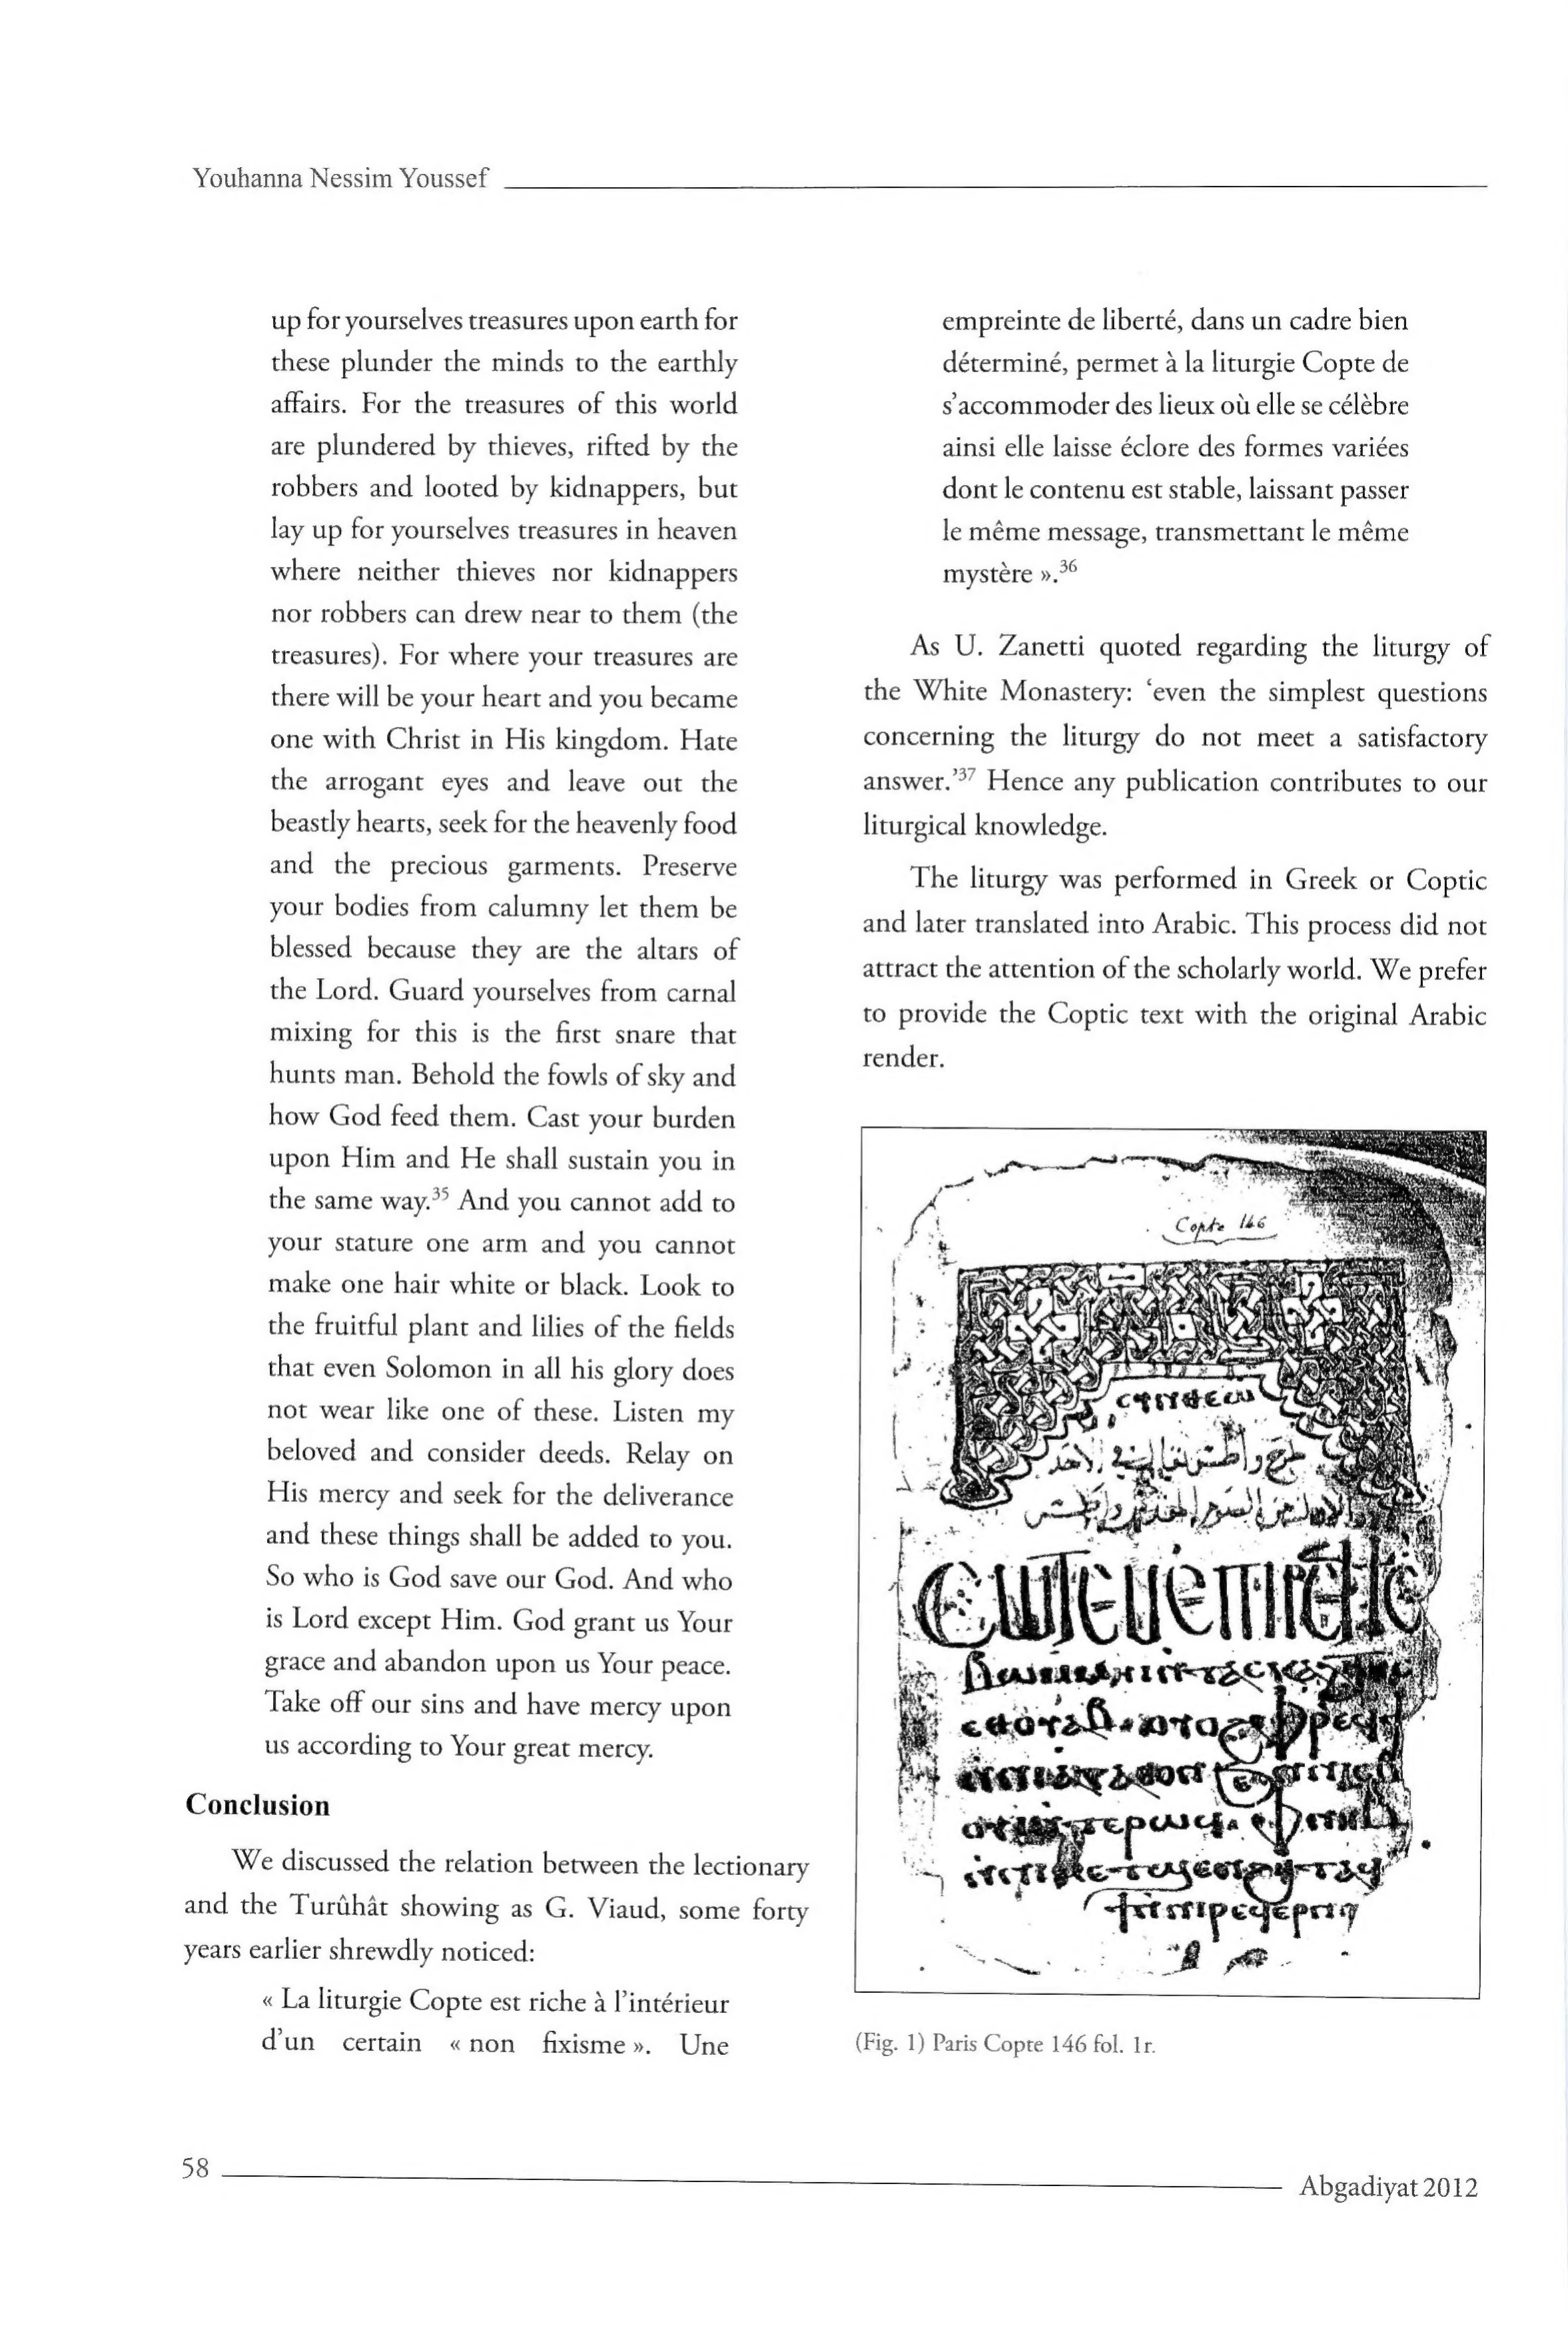 Youhanna Nessim Youssef
up for yourselves treasures upon earth for
these plunder the minds to the earthly
affairs. For the treasures of this world
are plundered by thieves, rifted by the
robbers and looted by kidnappers, but
lay up for yourselves treasures in heaven
where neither thieves nor kidnappers
nor robbers can drew near to them (the
treasures). For where your treasures are
there will be your heart and you became
one with Christ in His kingdom. Hate
the arrogant eyes and leave out the
beastly hearts, seek for the heavenly food
and the precious garments. Preserve
your bodies from calumny let them be
blessed because they are the altars of
the Lord. Guard yourselves from carnal
mixing for this is the first snare that
hunts man. Behold the fowls of sky and
how God feed them. Cast your burden
upon Him and He shall sustain you in
the same way.³⁵ And you cannot add to
your stature one arm and you cannot
make one hair white or black. Look to
the fruitful plant and lilies of the fields
that even Solomon in all his glory does
not wear like one of these. Listen my
beloved and consider deeds. Relay on
His mercy and seek for the deliverance
and these things shall be added to you.
So who is God save our God. And who
is Lord except Him. God grant us Your
grace and abandon upon us Your peace.
Take off our sins and have mercy upon
us according to Your great mercy.
Conclusion
We discussed the relation between the lectionary
and the Turûhât showing as G. Viaud, some forty
years earlier shrewdly noticed:
« La liturgie Copte est riche à l'intérieur
d'un certain « non fixisme ». Une
empreinte de liberté, dans un cadre bien
déterminé, permet à la liturgie Copte de
s'accommoder des lieux où elle se célèbre
ainsi elle laisse éclore des formes variées
dont le contenu est stable, laissant passer
le même message, transmettant le même
mystère ».³⁶
As U. Zanetti quoted regarding the liturgy of
the White Monastery: 'even the simplest questions
concerning the liturgy do not meet a satisfactory
answer.'³⁷ Hence any publication contributes to our
liturgical knowledge.
The liturgy was performed in Greek or Coptic
and later translated into Arabic. This process did not
attract the attention of the scholarly world. We prefer
to provide the Coptic text with the original Arabic
render.
Copte 146
(Fig. 1) Paris Copte 146 fol. 1r.
58
Abgadiyat 2012